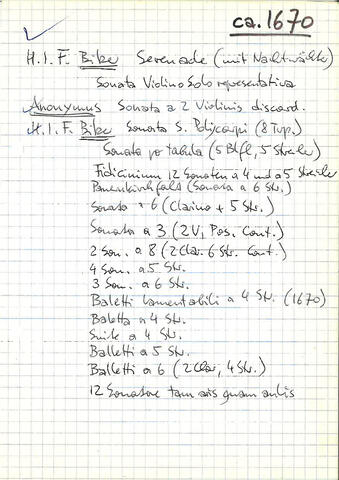 ca. 1670
H.I.F. Biber Serenade (mit Nachtwächter)
Sonata Violino Solo representativa
Anonymus Sonata a 2 Violinis discord.
H.I.F. Biber Sonata S. Polycarpi (8 Trp.)
Sonata pro tabula (5 Blfl, 5 Streicher)
Fidicinium 12 Sonaten a 4 und a 5 Streicher
(Sonata a 6 Str.)
Sonata a 6 (Clarino + 5 Str.)
Sonata a 3 (2 V, Pos. Cont.)
2 Son. a 8 (2 Clar. 6 Str. Cont.)
4 Son. a 5 Str.
3 Son. a 6 Str.
Baletti lamentabili a 4 Str. (1670)
Baletta a 4 Str.
Suite a 4 Str.
Balletti a 5 Str.
Balletti a 6 (2 Clar, 4 Str.)
12 Sonatae tam aris quam aulis